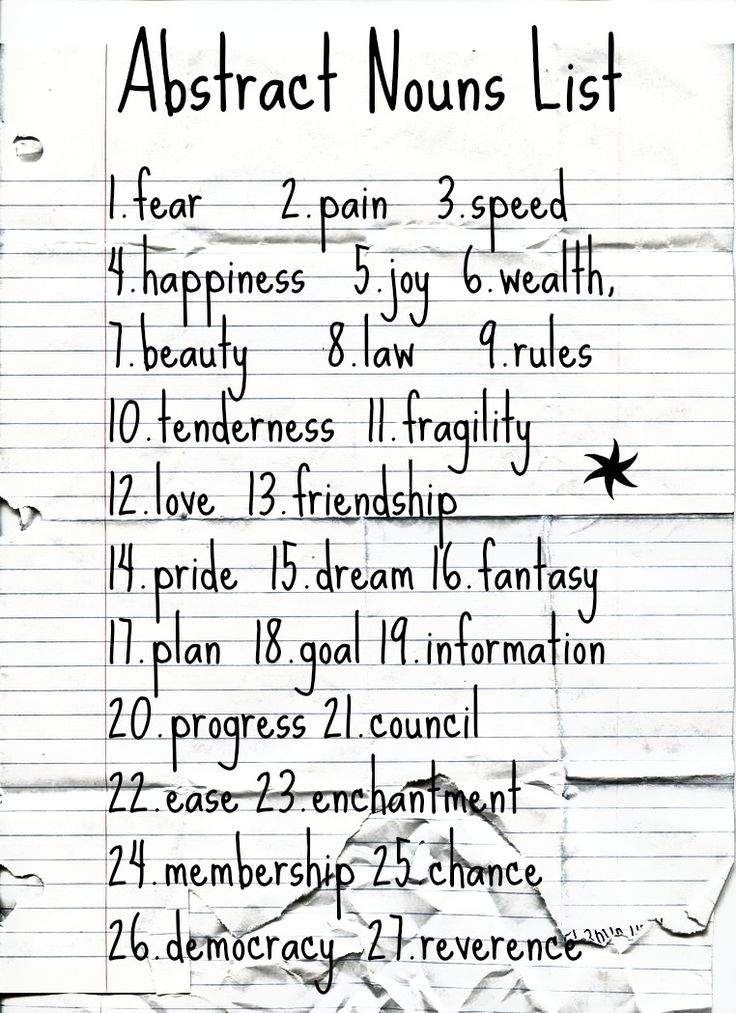 Abstract Nouns List
1.fear 2.pain 3.speed
4.happiness 5.joy 6.wealth,
7.beauty 8.law 9.rules
10.tenderness 11.fragility
12.love 13.friendship
14.pride 15.dream 16.fantasy
17.plan 18.goal 19.information
20.progress 21.council
22.ease 23.enchantment
24.membership 25.chance
26.democracy 27.reverence